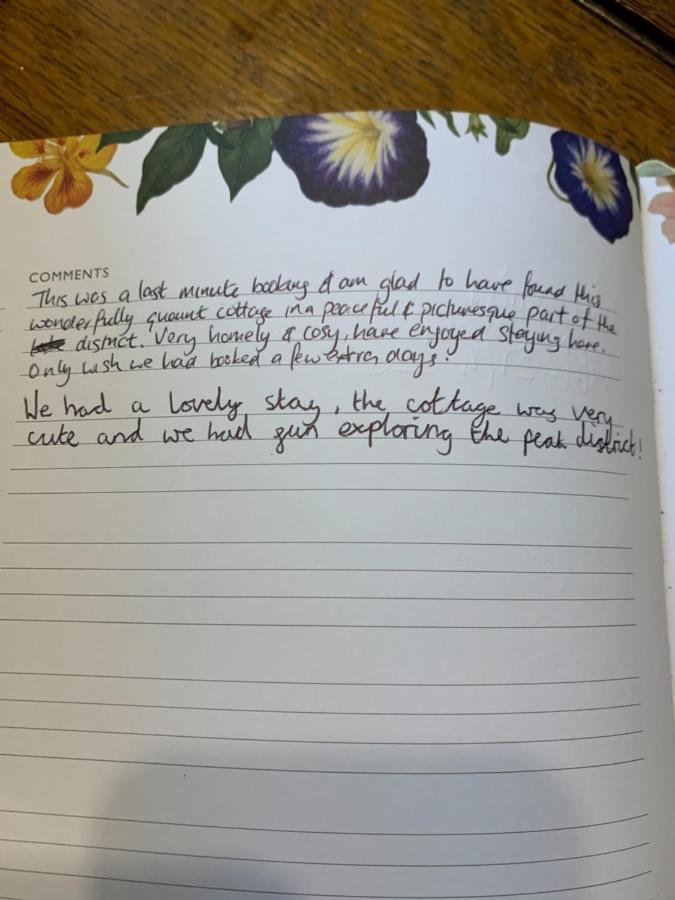 COMMENTS
This was a last minute booking & am glad to have found this
wonderfully quaint cottage in a peaceful & picturesque part of the
district. Very homely & cosy, have enjoyed staying here.
Only wish we had booked a few extra days!
We had a lovely stay, the cottage was very
cute and we had fun exploring the peak district!